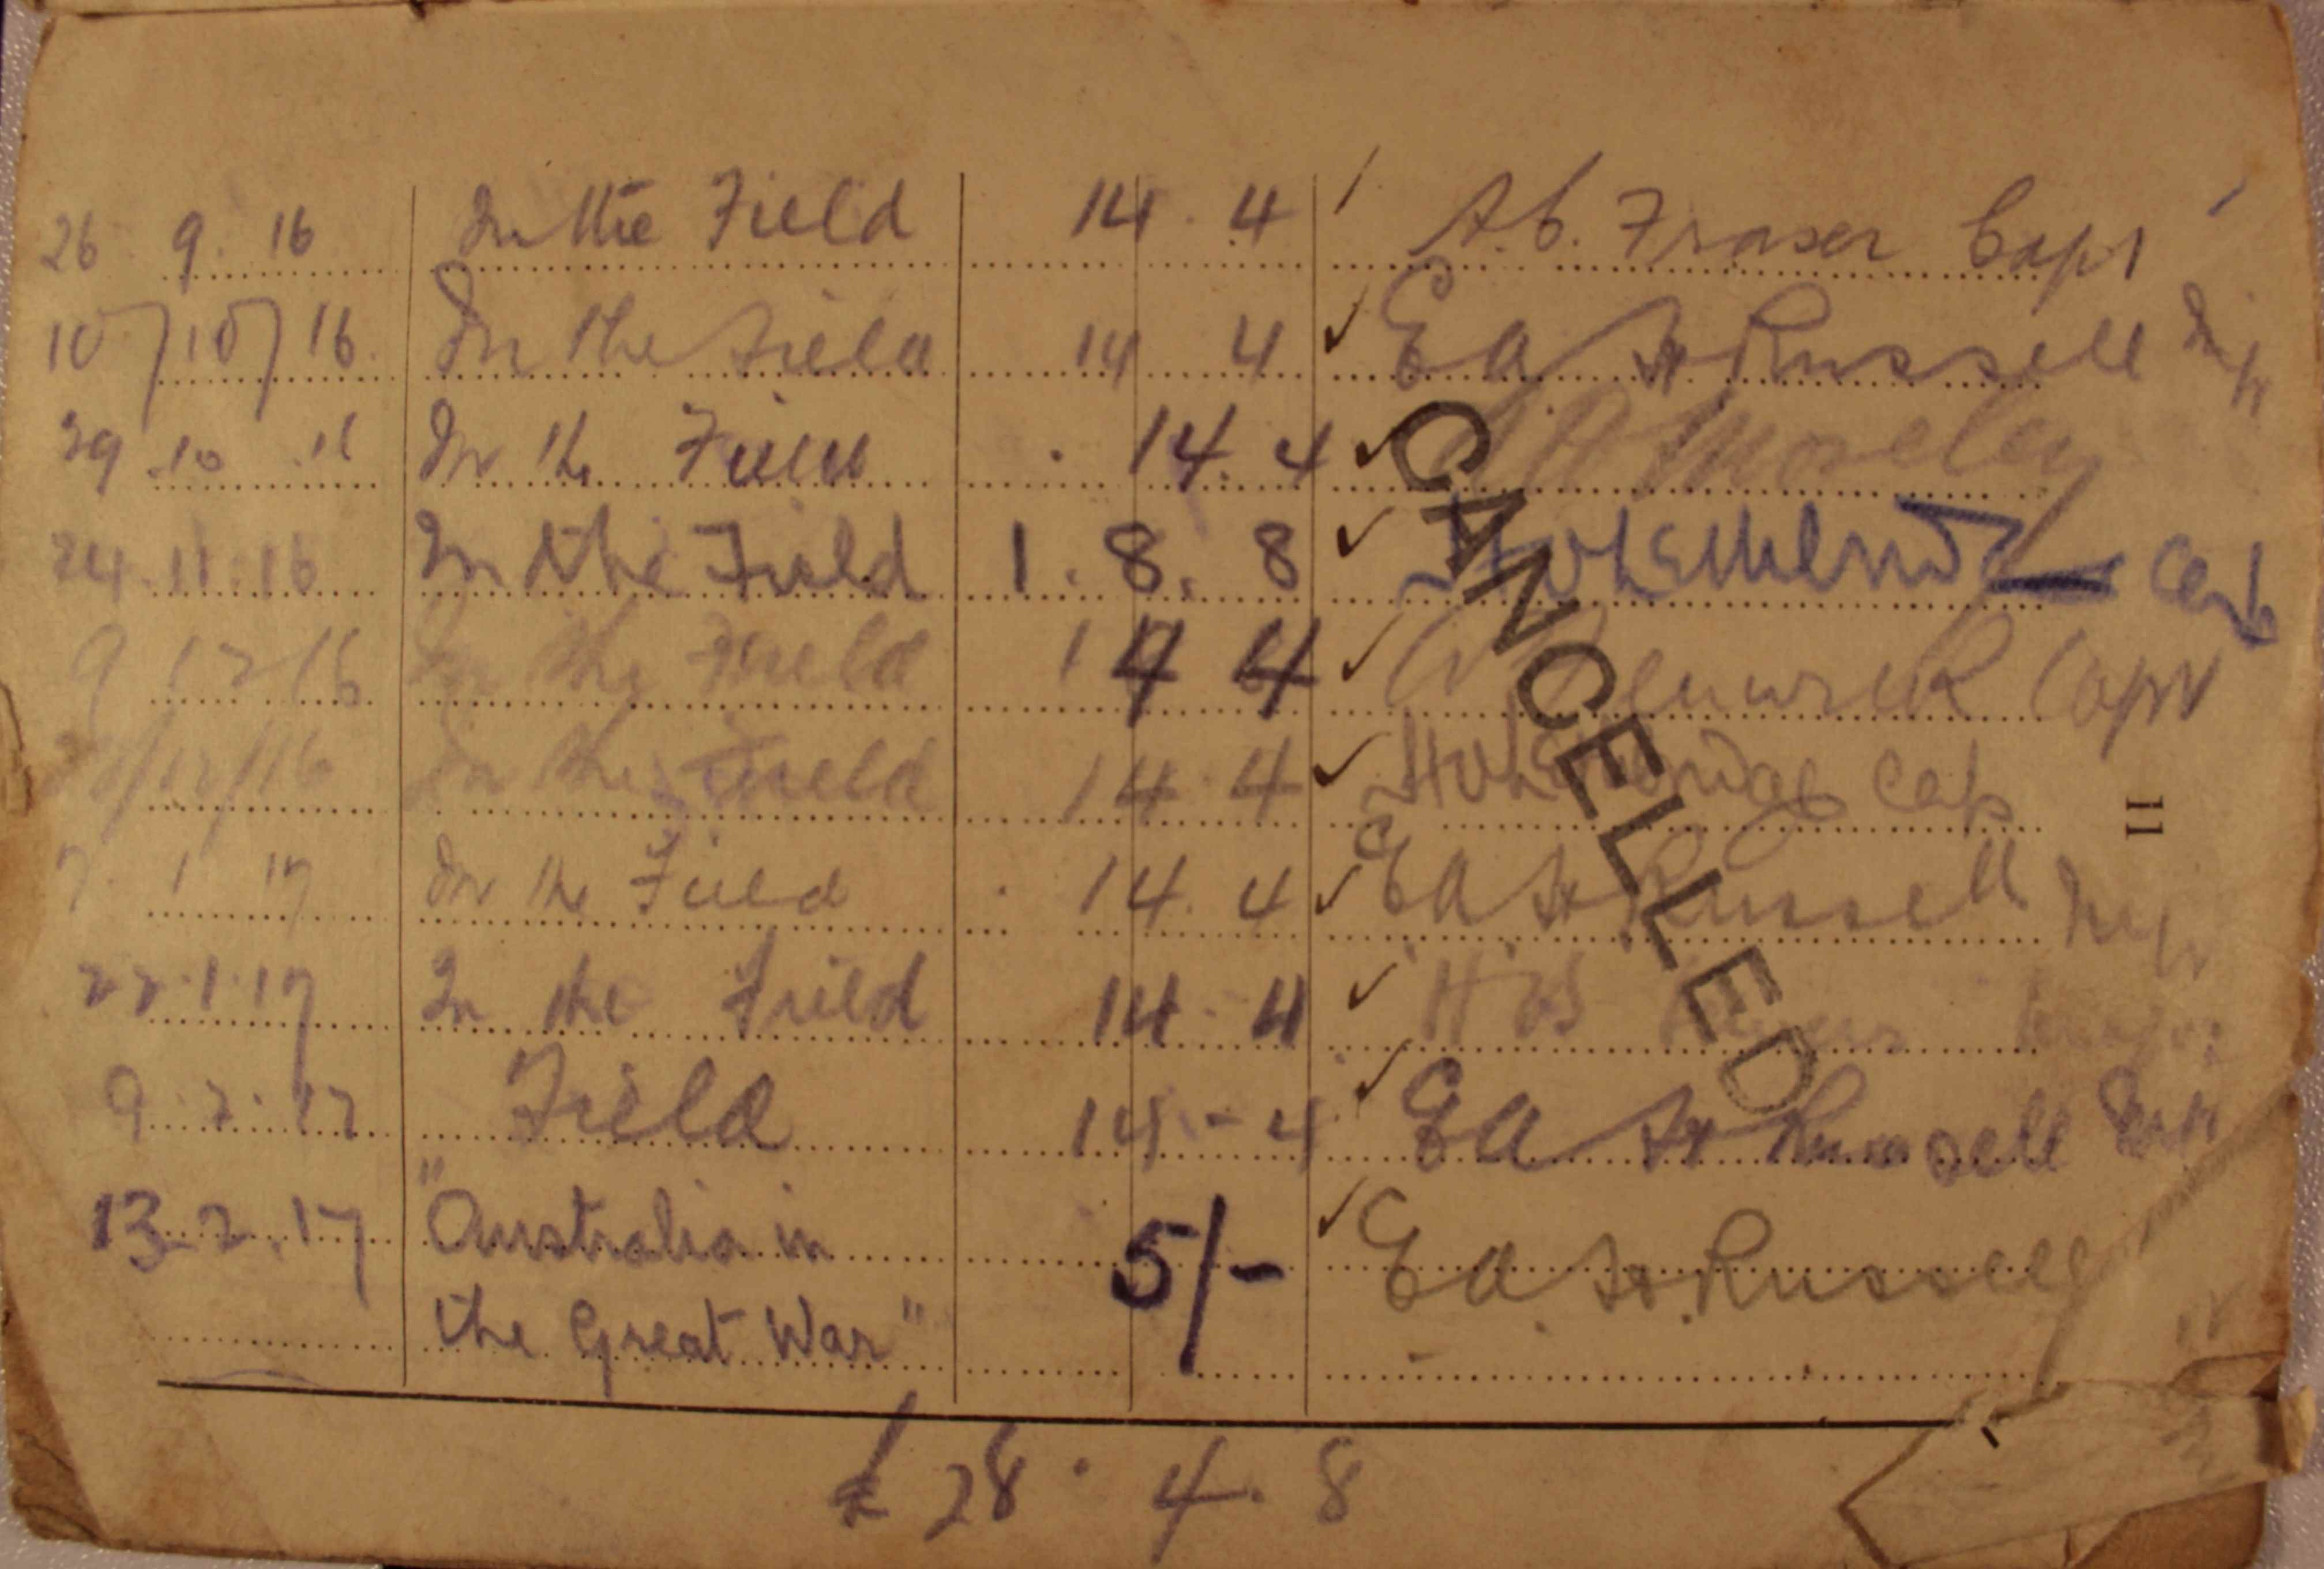 26 9 16 In the Field 14. 4 A. C. Fraser Capt
10/10/16. In the Field 14 4 E A H Russell
29 10 16 In the Field 14. 4 Moseley
24. 11. 16 In the Field 1. 8. 8 Capt
9 12 16 In the Field 14 4 Renwick Capt
/12/16 In the Field 14. 4
7 1 17 In the Field 14. 4 E A H Russell
22. 1. 17 In the Field 14. 4
9. 2. 17 Field 14 - 4 E A H Russell
13. 2. 17 "Australia in 5/- E A H Russell
the Great War"
£ 28. 4. 8
CANCELLED
11